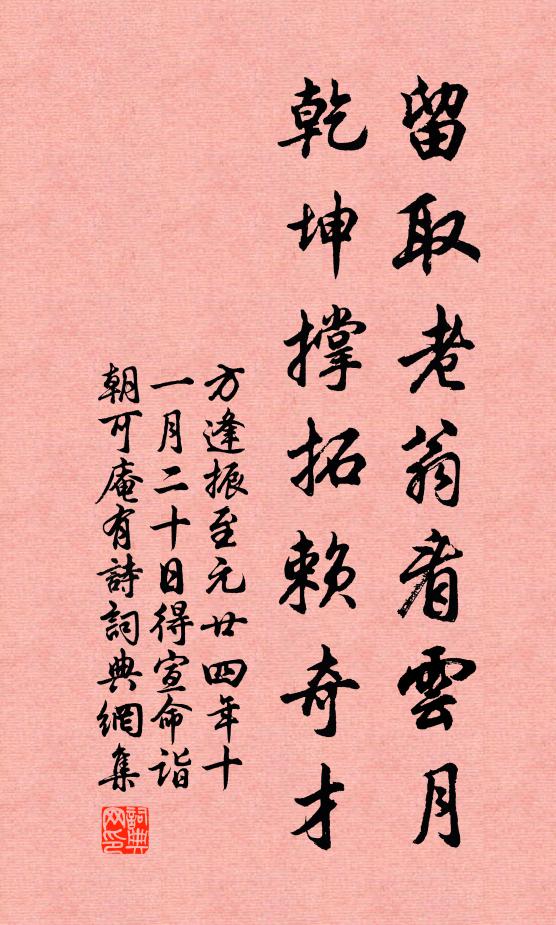 留取老翁看雲月
乾坤撐拓賴奇才
方逢振至元廿四年十
一月二十日得宣命詣
朝可庵有詩詞典網集
詞典
网印